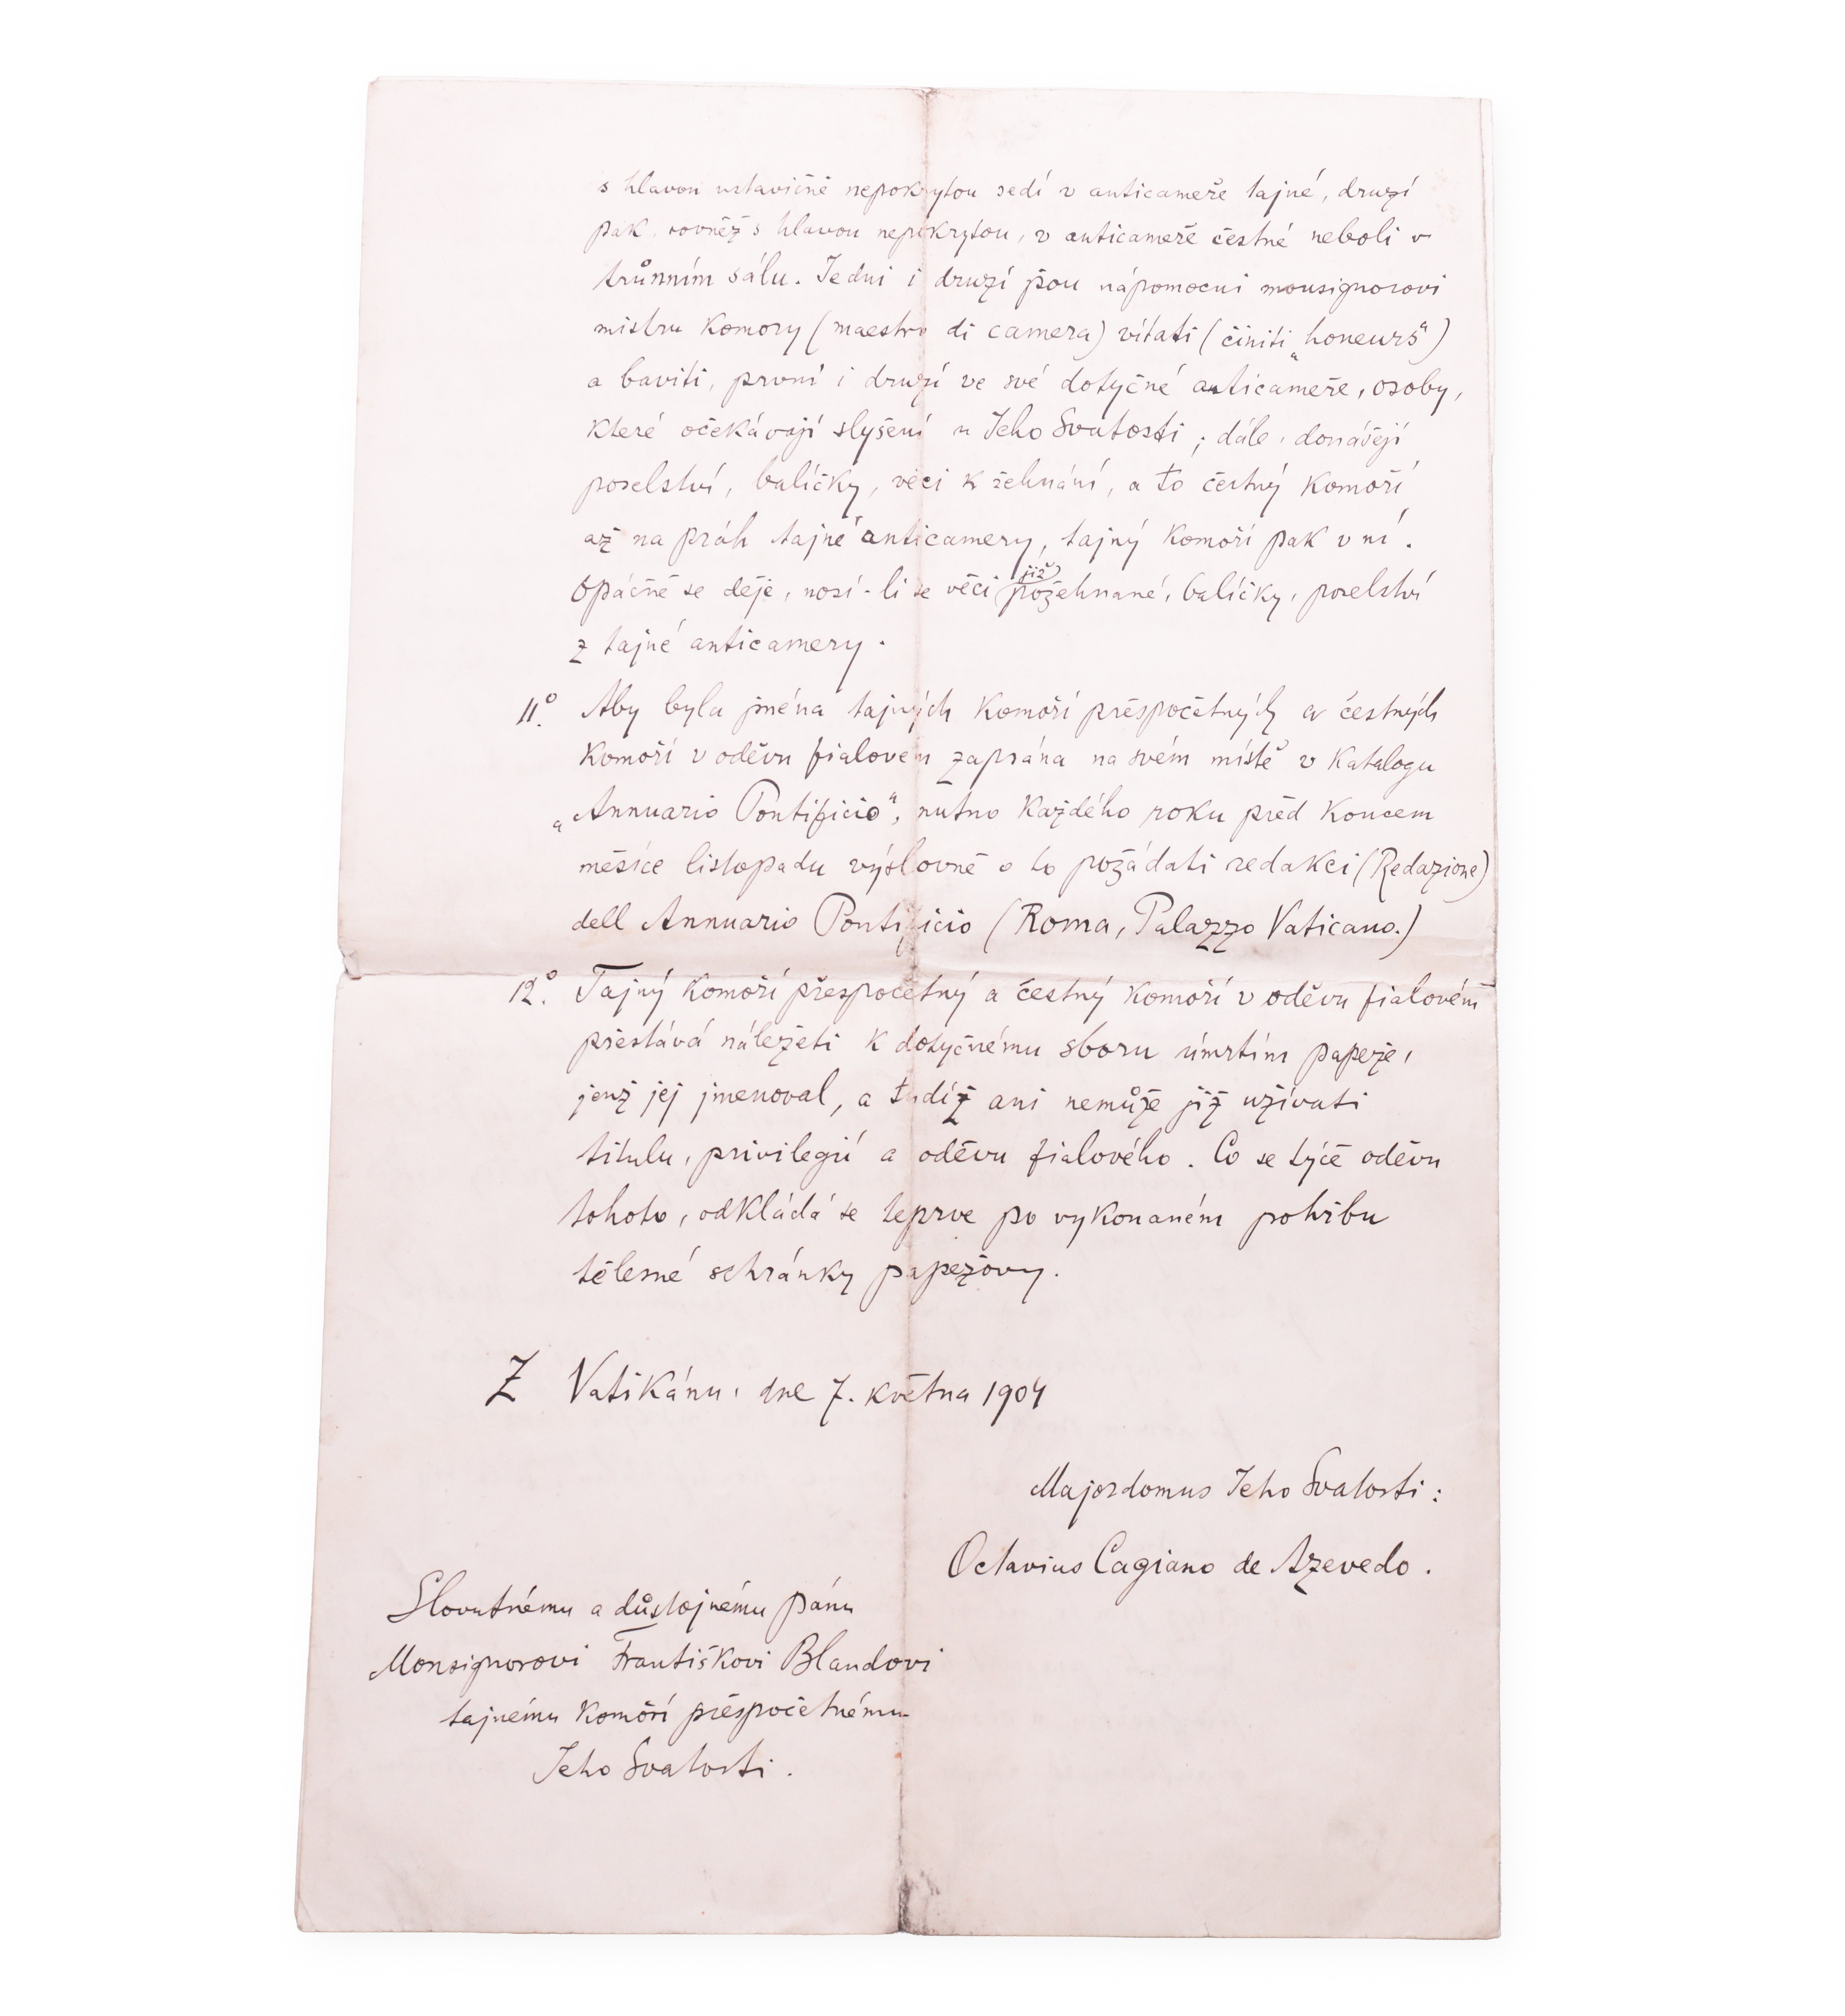 s hlavou ustavičně nepokrytou sedí v anticameře tajné, druzí
pak, rovněž s hlavou nepokrytou, v anticameře čestné neboli v
trůnním sálu. Jedni i druzí jsou nápomocni monsignorovi
mistru komory (maestro di camera) vítati (činiti „honeurs“)
a baviti, první i druzí ve své dotyčné anticameře, osoby,
které očekávají slyšení u Jeho Svatosti; dále, donášejí
poselství, balíčky, věci k žehnání, a to čestný komoří
až na práh tajné anticamery, tajný komoří pak v ní.
Opáčně se děje, nosí-li se věci již požehnané, balíčky, poselství
z tajné anticamery.
11.° Aby byla jména tajných komoří přespočetných a čestných
komoří v oděvu fialovém zapsána na svém místě v katalogu
„Annuario Pontificio“, nutno každého roku před koncem
měsíce listopadu výslovně o to požádati redakci (Redazione)
dell Annuario Pontificio (Roma, Palazzo Vaticano.)
12.° Tajný komoří přespočetný a čestný komoří v oděvu fialovém
přestává náležeti k dotyčnému sboru úmrtím papeže,
jenž jej jmenoval, a tudíž ani nemůže již užívati
titulu, privilegií a oděvu fialového. Co se týče oděvu
tohoto, odkládá se teprve po vykonaném pohřbu
tělesné schránky papežovy.
Z Vatikánu, dne 7. května 1904
Majordomus Jeho Svatosti:
Octavius Cagiano de Azevedo.
Slovutnému a důstojnému pánu
Monsignorovi Františkovi Blandovi
tajnému komoří přespočetnému
Jeho Svatosti.